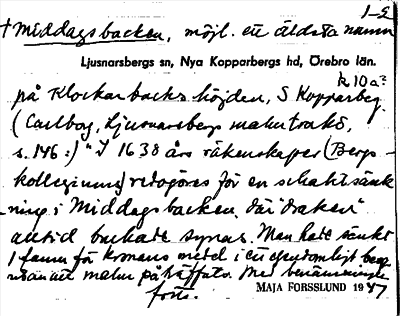 1-2
+ Middagsbacken, möjl. ett äldsta namn
Ljusnarsbergs sn, Nya Kopparbergs hd, Örebro län.
k 10a?
på Klockarbackshöjden, S Kopparberg.
(Carlborg, Ljusnarsbergs malmtrakt,
s. 146:) "I 1638 års räkenskaper (Bergs-
kollegiums) redogöres för en schaktsänk-
ning i Middagsbacken, där "draken"
alltid brukade synas. Man hade sänkt
1 famn för kronans medel i ett egendomligt berg
utan att malm påträffats. Med benämningen
forts.
MAJA FORSSLUND 1947